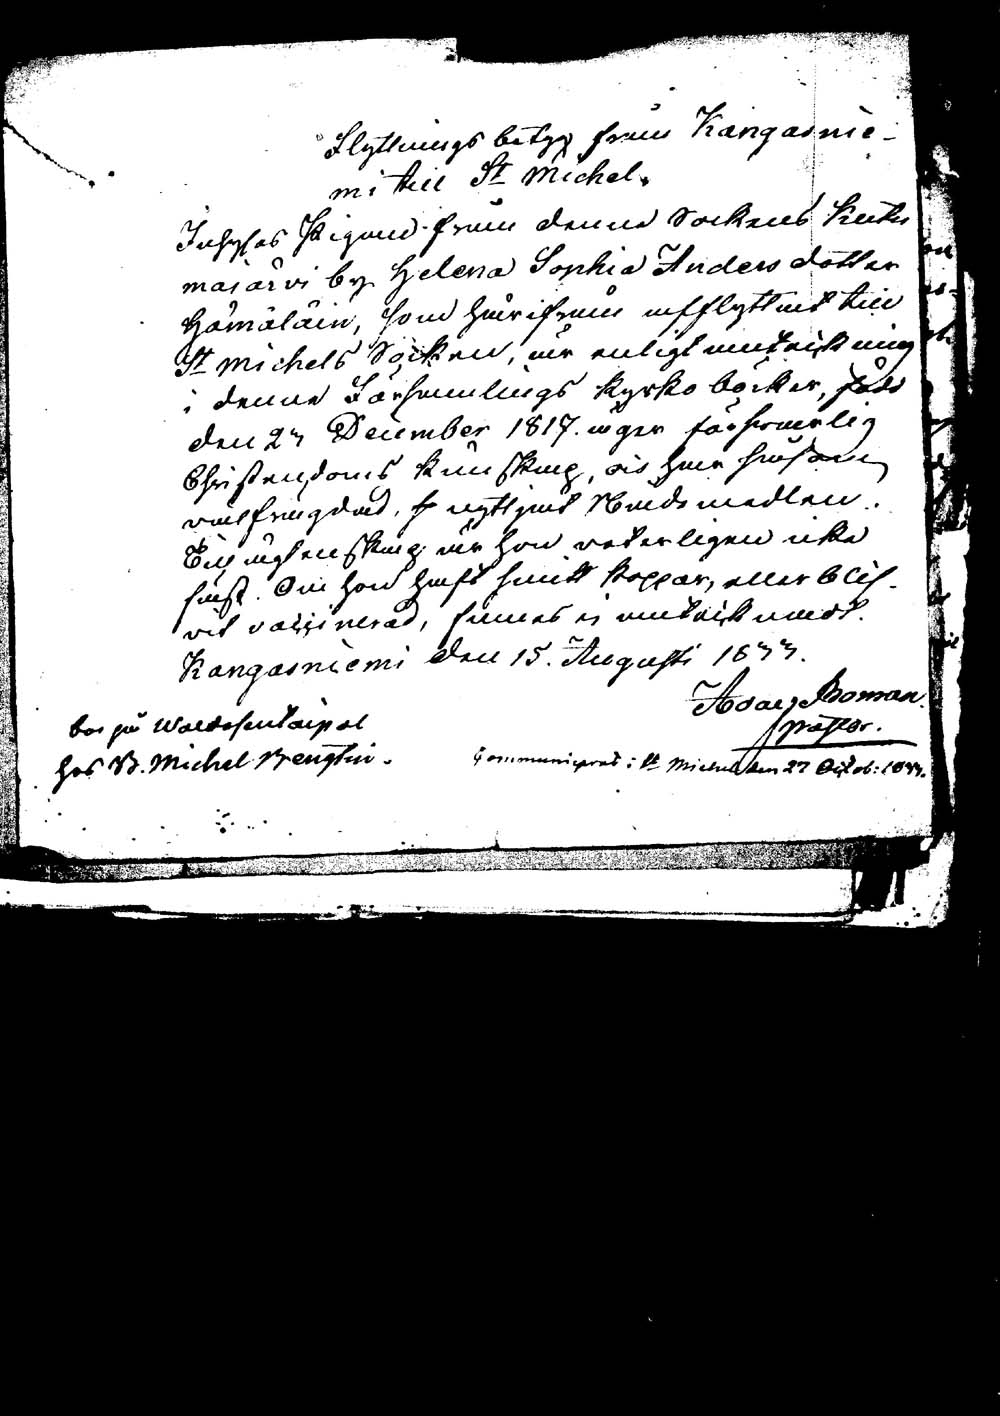 Flyttnings betyg från Kangasnie-
mi till St Michel.
Inhyses Pigan från denna Sockens Kuto
majärvi by Helena Sophia Anders dotter
Hämäläin, som härifrån afflyttat till
St Michels Socken, är enligt anteckning
i denna Församlings Kyrko böcker, född
den 27 December 1817. äger försvarlig
Christendoms kunskap, är här
väl frägdad, nyttjat Nådemedlen.
Till ägtenskap är hon veterligen icke
fäst. Om hon haft haft koppor, eller blif-
vit vaccinerad, finnes ej antecknadt.
Kangasniemi den 15. Augusti 1833.
Boman.
Pastor.
bor på
hos B. Michel
Communicerat i St Michel den 27 Octob: 1833.